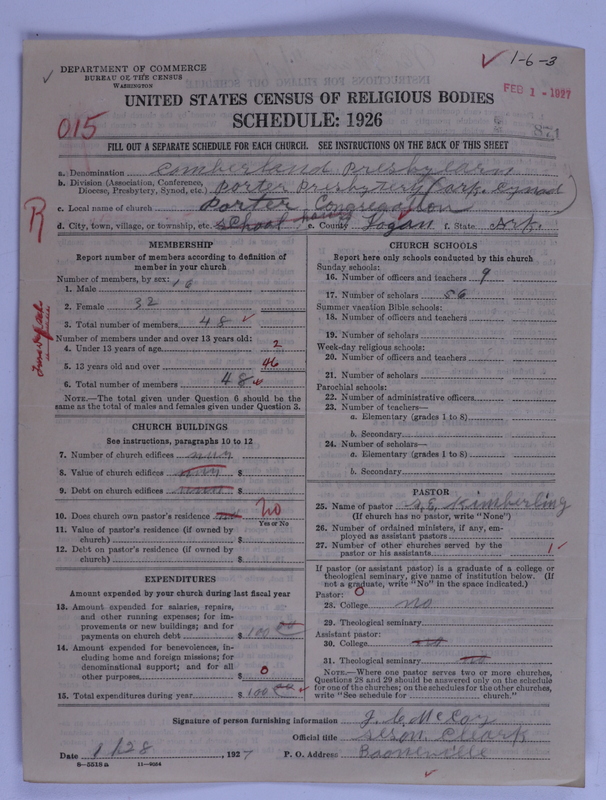 ✓ 1-6-3
DEPARTMENT OF COMMERCE
BUREAU OF THE CENSUS
WASHINGTON
FEB 1 - 1927
UNITED STATES CENSUS OF RELIGIOUS BODIES
SCHEDULE: 1926
015
871
FILL OUT A SEPARATE SCHEDULE FOR EACH CHURCH. SEE INSTRUCTIONS ON THE BACK OF THIS SHEET
a. Denomination Comberland Presbytearn
b. Division (Association, Conference, Diocese, Presbytery, Synod, etc.) Porter Presbytery (Ark. Synod)
c. Local name of church Porter Congregation
d. City, town, village, or township, etc. School house e. County Logan f. State Ark.
R
MEMBERSHIP
Report number of members according to definition of
member in your church
Number of members, by sex:
1. Male 16
2. Female 32
3. Total number of members 48 ✓
Number of members under and over 13 years old:
4. Under 13 years of age 2
5. 13 years old and over 46
6. Total number of members 48 ✓
NOTE.—The total given under Question 6 should be
same as the total of males and females given under Question 3.
CHURCH BUILDINGS
See instructions, paragraphs 10 to 12
7. Number of church edifices
8. Value of church edifices $
9. Debt on church edifices $
10. Does church own pastor's residence no No
Yes or No
11. Value of pastor's residence (if owned by
church) $
12. Debt on pastor's residence (if owned by
church) $
EXPENDITURES
Amount expended by your church during last fiscal year
13. Amount expended for salaries, repairs,
and other running expenses; for im-
provements or new buildings; and for
payments on church debt $ 100 00
14. Amount expended for benevolences, in-
cluding home and foreign missions; for
denominational support; and for all
other purposes $ 0
15. Total expenditures during year $ 100 00 ✓
CHURCH SCHOOLS
Report here only schools conducted by this church
Sunday schools:
16. Number of officers and teachers 9
17. Number of scholars 56
Summer vacation Bible schools:
18. Number of officers and teachers
19. Number of scholars
Week-day religious schools:
20. Number of officers and teachers
21. Number of scholars
Parochial schools:
22. Number of administrative officers
23. Number of teachers—
a. Elementary (grades 1 to 8)
b. Secondary
24. Number of scholars—
a. Elementary (grades 1 to 8)
b. Secondary
PASTOR
25. Name of pastor S. E. Kimberling
(If church has no pastor, write "None")
26. Number of ordained ministers, if any, em-
ployed as assistant pastors
27. Number of other churches served by the
pastor or his assistants 1 ✓
If pastor (or assistant pastor) is a graduate of a college or
theological seminary, give name of institution below. (If
not a graduate, write "No" in the space indicated.)
Pastor: 0
28. College no
29. Theological seminary
Assistant pastor:
30. College no
31. Theological seminary no
NOTE.—Where one pastor serves two or more churches,
Questions 28 and 29 should be answered only on the schedule
for one of the churches; on the schedules for the other churches,
write "See schedule for church."
Signature of person furnishing information J. C. McCoy
Official title Seson Cleark
Date 1/28, 1927 P. O. Address Booneville
8-5518 a 11-9064